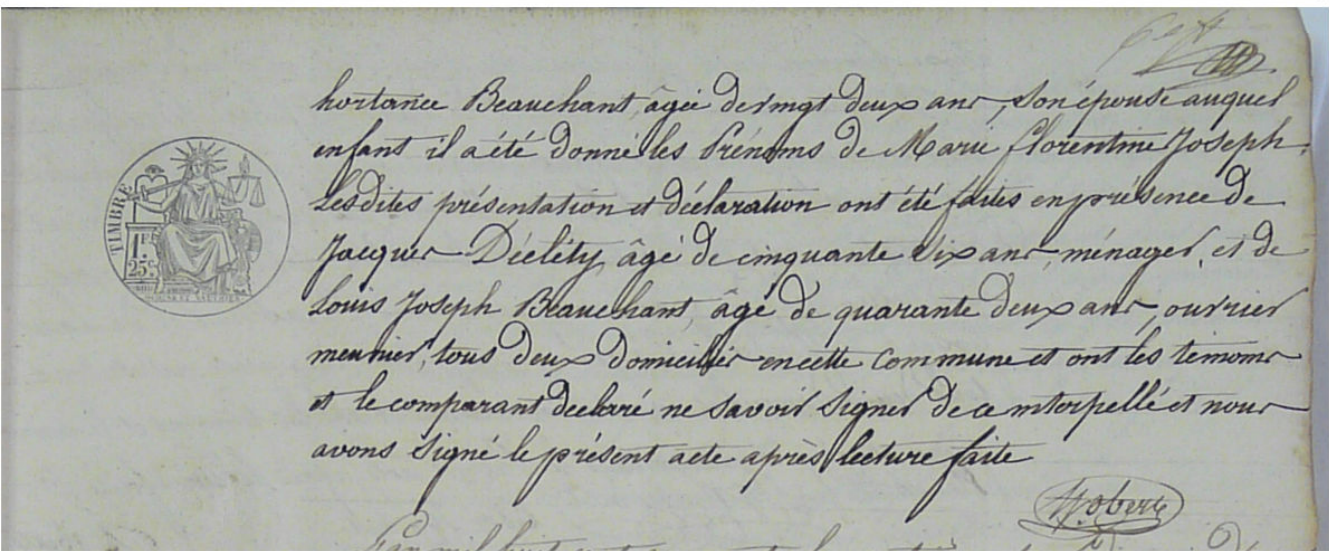 hortance Beauchant, âgée de vingt deux ans, son épouse auquel
enfant il a été donné les Prénoms de Marie florentine Joseph.
Lesdites présentation et déclaration ont été faites en présence de
Jacques Décléty, âgé de cinquante six ans, ménager, et de
TIMBRE
1F
25C
Louis Joseph Beauchant, âgé de quarante deux ans, ouvrier
meunier, tous deux domiciliés en cette commune et ont les témoins
et le comparant déclaré ne savoir signer de ce interpellé et nous
avons signé le présent acte après lecture faite
L'an mil huit cent